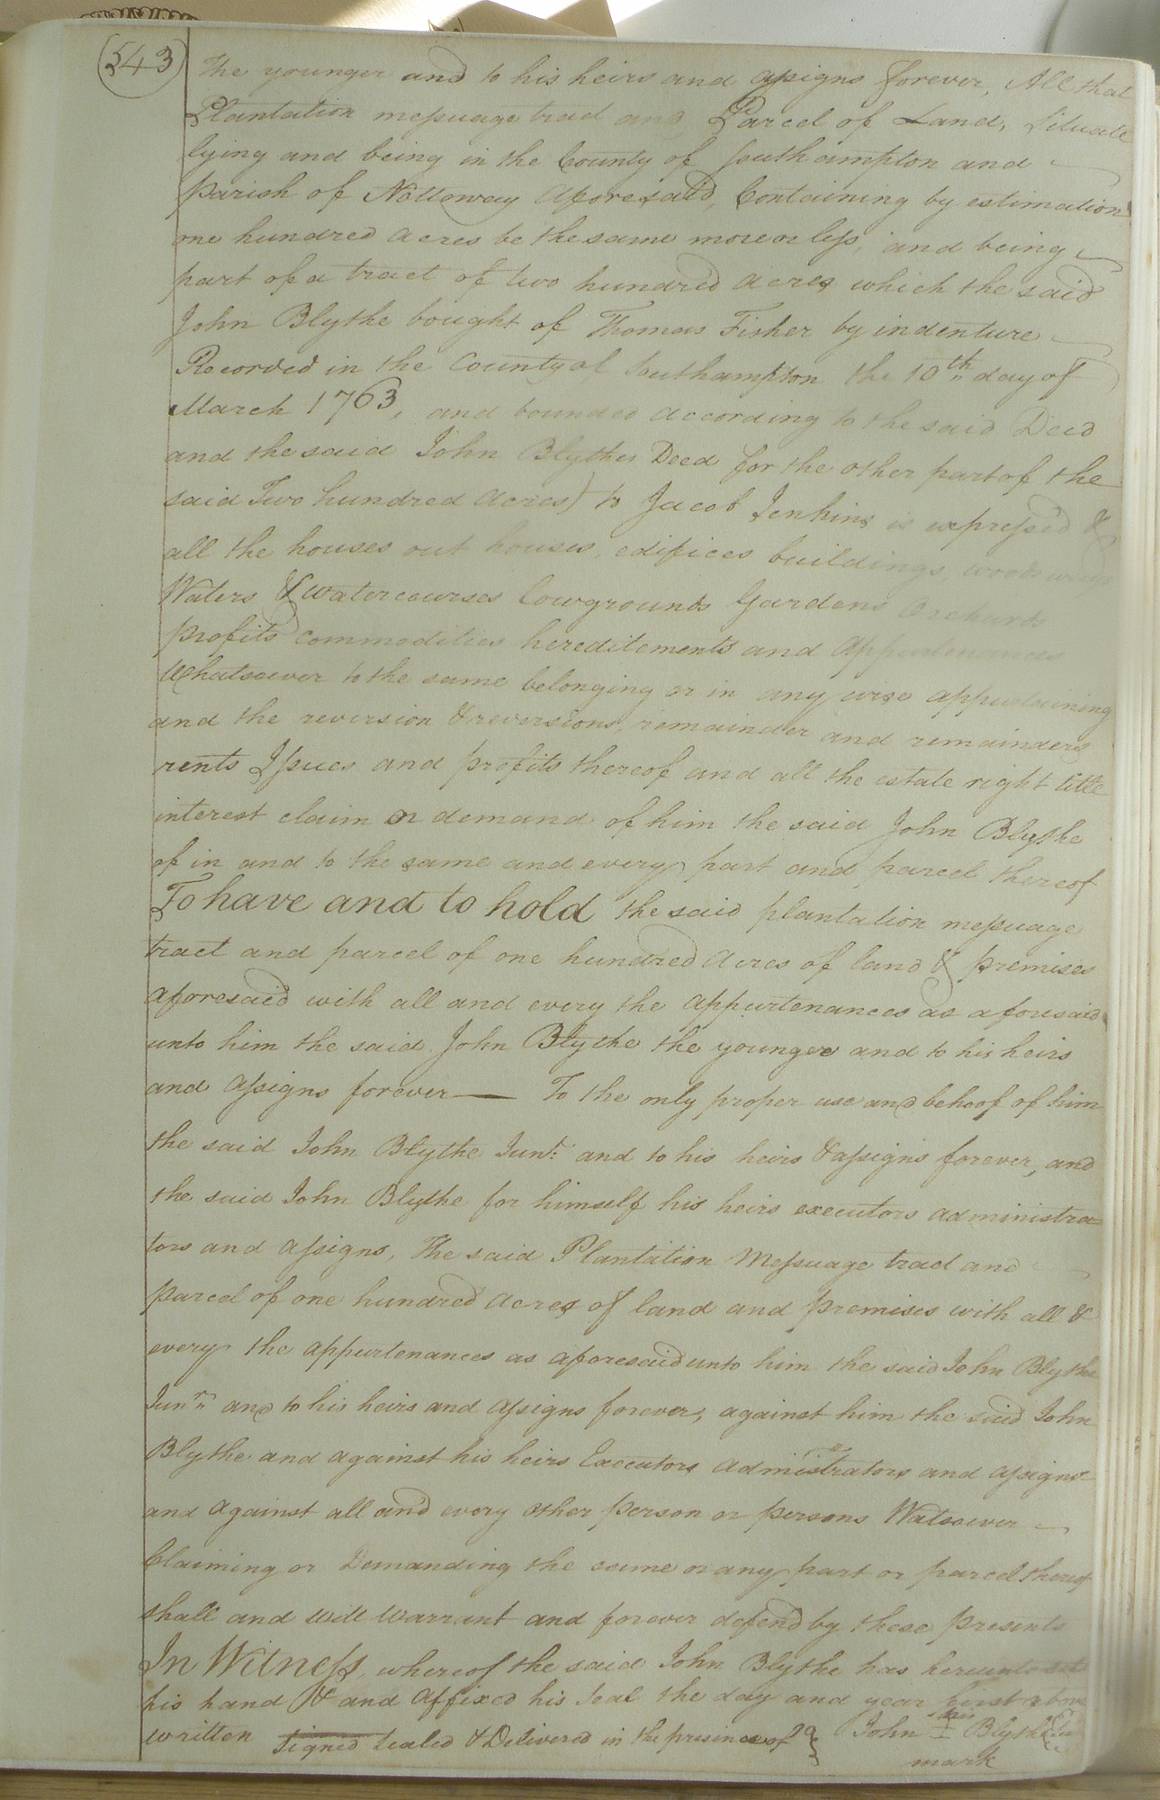 (543)
The younger and to his heirs and assigns forever, All that
Plantation messuage tract and Parcel of Land, Situate
lying and being in the County of Southampton and
parish of Nottoway aforesaid, Containing by estimation
one hundred acres be the same more or less, and being
part of a tract of two hundred acres which the said
John Blythe bought of Thomas Fisher by indenture
Recorded in the County of Southampton the 10th day of
March 1763, and bounded according to the said Deed
and the said John Blythes Deed for the other part of the
said Two hundred acres) to Jacob Jenkins is express'd &
all the houses out houses, edifices buildings, woods
Waters & watercourses lowgrounds Gardens Orchards
profits commodities hereditements and appurtenances
Whatsoever to the same belonging or in any wise appurtaining
and the reversion & reversions, remainder and remainders
rents Issues and profits thereof and all the estate right title
interest claim or demand of him the said John Blythe
of in and to the same and every part and parcel thereof
To have and to hold the said plantation messuage
tract and parcel of one hundred acres of land & premises
aforesaid with all and every the appurtenances as aforesaid
unto him the said John Blythe the younger and to his heirs
and assigns forever — To the only proper use and behoof of him
the said John Blythe Junr. and to his heirs & assigns forever, and
the said John Blythe for himself his heirs executors administra-
tors and assigns, The said Plantation Messuage tract and
parcel of one hundred acres of land and premises with all &
every the appurtenances as aforesaid unto him the said John Blythe
Junr and to his heirs and assigns forever, against him the said John
Blythe and against his heirs Executors administrators and assigns
and against all and every other person or persons Watsoever
Claiming or Demanding the same or any part or parcel thereof
shall and will warrant and forever defend by these presents
In Witness, whereof the said John Blythe has hereunto set
his hand & and affixed his seal the day and year first above
written Signed Sealed & Delivered in the presince of } John his I Blythe
mark